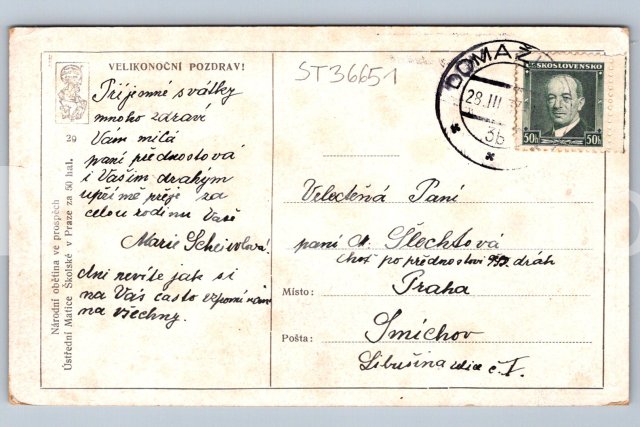 VELIKONOČNÍ POZDRAV!
ST36651
DOMAŽ
28.III
36
ČESKOSLOVENSKO
50h 50h
Příjemné svátky
mnoho zdraví
Vám milá
paní přednostová
i Vaším drahým
upřímě přeje za
celou rodinu Vaší
Marie
dni nevíte jak si
na Vás často vzpomínám
na všechny.
29
Národní obětina ve prospěch
Ústřední Matice Školské v Praze za 50 hal.
Veloctěná Paní
paní A. Šlechtová
choť po přednostovi drah
Místo: Praha
Pošta: Smíchov
Libušina ulice č. I.